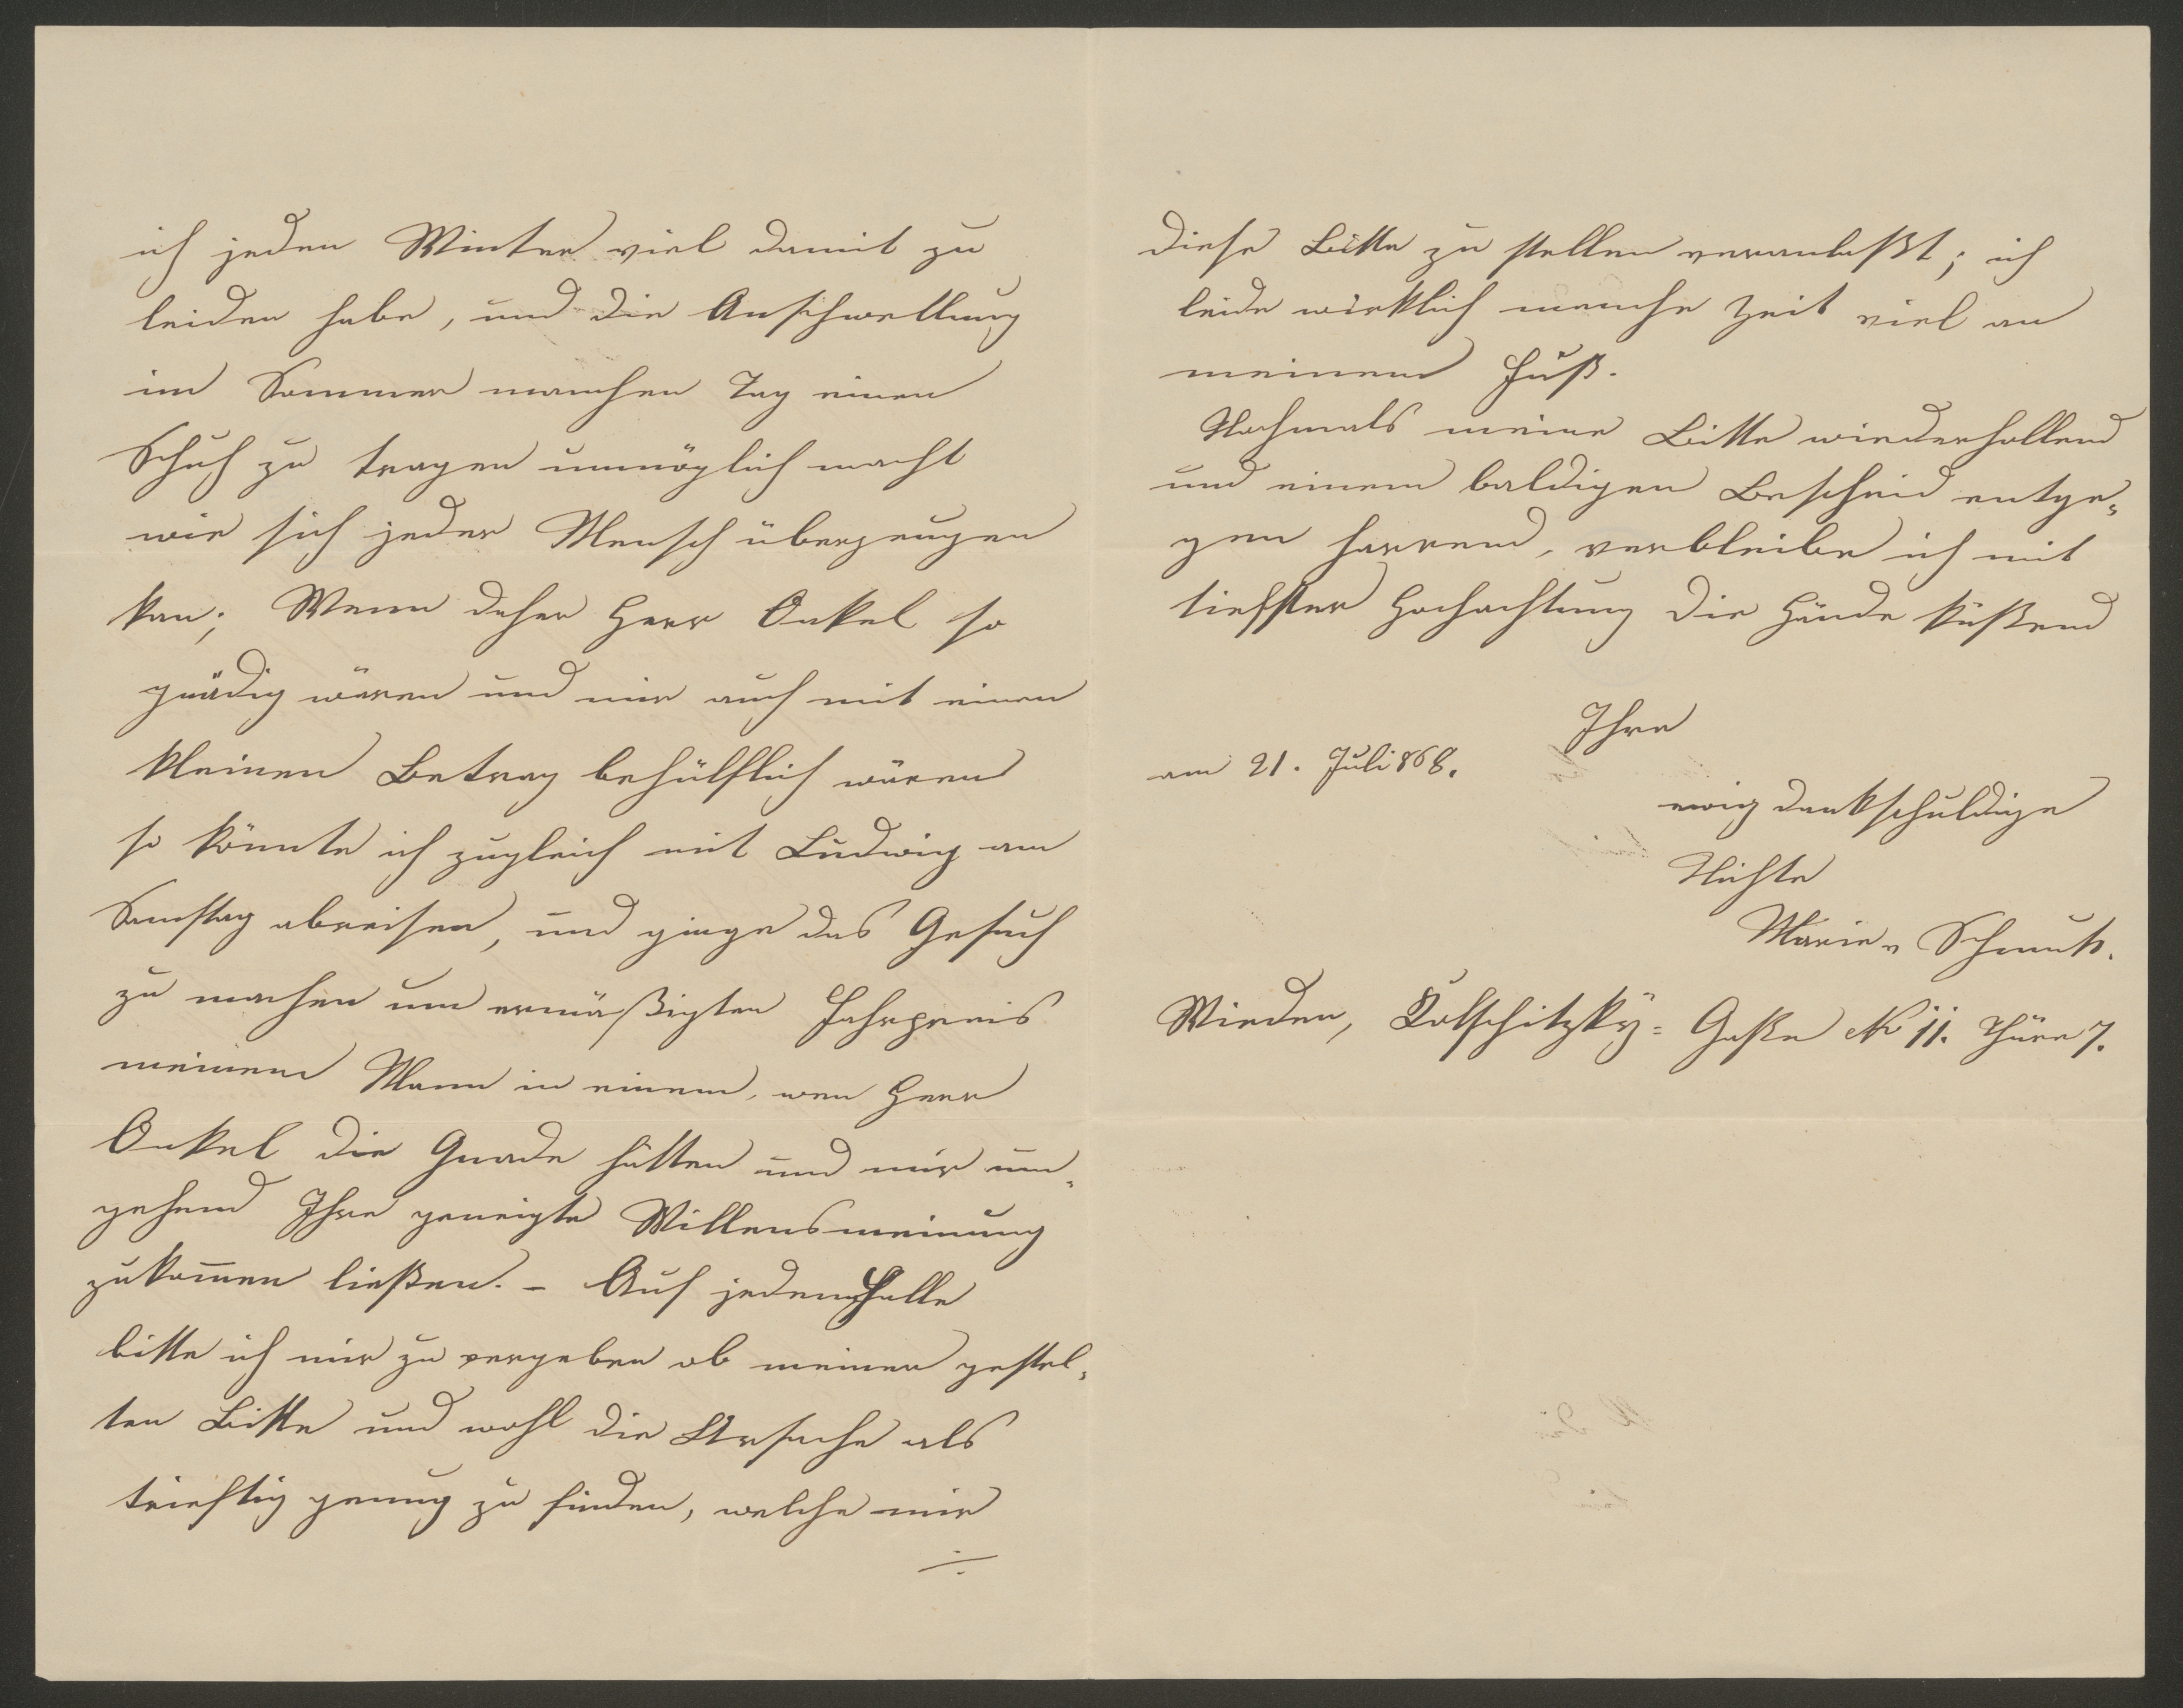 ich jeden Winter viel damit zu
leiden habe, und die Anschwellung
im Sommer manchen Tag einen
Schuh zu tragen unmöglich macht
wie sich jeder Mensch überzeugen
kan; Wenn daher Herr Onkel so
gnädig wären und mir auch mit einen
kleinen Betrag behülflich wären
so könnte ich zugleich mit Ludwig am
Samstag abreisen, und ginge das Gesuch
zu machen um ermäßigten Fahrpreis
meinem Mann in einem, wen Herr
Onkel die Gnade hätten und mir um„
gehend Ihre geneigte Willensmeinung
zukom̄en ließen. – Auf jedem Falle
bitte ich mir zu vergeben ob meiner gestel„
ten Bitte und wohl die Ursache als
trieftig genug zu finden, welche mir
÷
diese Bitte zu stellen veranlaßt; ich
leide wirklich manche Zeit viel an
meinem Fuß.
Nochmals meine Bitte wiederhollend
und einem baldigen Bescheid entge„
gen harrend, verbleibe ich mit
tiefster Hochachtung die Hände küßend
Ihre
am 21. Juli 868.
ewig dankschuldige
Nichte
Marie Schmutz.
Wieden, Kolschitzky= Gaße No 11. Thüre 7.